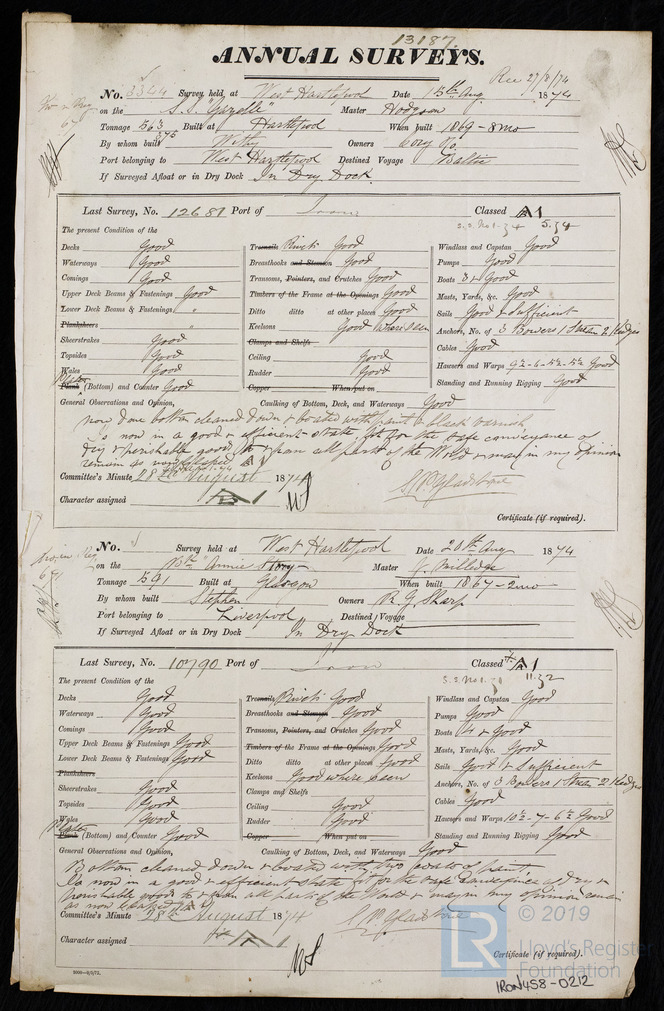 13187.
ANNUAL SURVEYS.
Rec 27/8/74
No. 3344 Survey held, at West Hartlepool Date 15th Aug 1874
on the S.S. "Gazelle" Master Hodgson
Tonnage 563 Built at Hartlepool When built 1869-8mo
375
By whom built Withy Owners Cory Co.
Port belonging to West Hartlepool Destined Voyage Baltic
If Surveyed Afloat or in Dry Dock In Dry Dock.
Last Survey, No. 12681 Port of Iron Classed A1
S.S. No1. 5.74
The present Condition of the
Decks Good
Waterways Good
Comings Good
Upper Deck Beams & Fastenings Good
Lower Deck Beams & Fastenings "
Planksheers "
Sheerstrakes Good
Topsides Good
Wales Good
Plates
Plank (Bottom) and Counter Good
Treenails Rivets Good
Breasthooks and Stemson Good
Transoms, Pointers, and Crutches Good
Timbers of the Frame at the Openings Good
Ditto ditto at other places Good
Keelsons Good where seen
Clamps and Shelfs
Ceiling Good
Rudder Good
Copper When put on
Windlass and Capstan Good
Pumps Good
Boats 3 Good
Masts, Yards, &c. Good
Sails Good & Sufficient
Anchors, No. of 3 Bowers 1 Stream 2 Kedges
Cables Good
Hawsers and Warps Good
Standing and Running Rigging Good
General Observations and Opinion, Caulking of Bottom, Deck, and Waterways Good
now done bottom cleaned down & coated with paint & black varnish
Is now in a good & efficient state, fit for the safe conveyance of
dry & perishable goods to & from all parts of the World & may in my opinion
remain as now classed A1
Committee's Minute 28th August 1874
Character assigned A1
Certificate (if required).
No. Survey held at West Hartlepool Date 20th Aug 1874
on the Bk "Annie Story" Master J. Millidge
Tonnage 591 Built at Glasgow When built 1867-2mo
By whom built Stephen Owners R. G. Sharp
Port belonging to Liverpool Destined Voyage
If Surveyed Afloat or in Dry Dock In Dry Dock
Last Survey, No. 10790 Port of Iron Classed A1
S.S. No1. 11.72
The present Condition of the
Decks Good
Waterways Good
Comings Good
Upper Deck Beams & Fastenings Good
Lower Deck Beams & Fastenings Good
Planksheers
Sheerstrakes Good
Topsides Good
Wales Good
Plates
Plank (Bottom) and Counter Good
Treenails Rivets Good
Breasthooks and Stemson Good
Transoms, Pointers, and Crutches Good
Timbers of the Frame at the Openings Good
Ditto ditto at other places Good
Keelsons Good where seen
Clamps and Shelfs
Ceiling Good
Rudder Good
Copper When put on
Windlass and Capstan Good
Pumps Good
Boats 4 Good
Masts, Yards, &c. Good
Sails Good & Sufficient
Anchors, No. of 3 Bowers 1 Stream 2 Kedges
Cables Good
Hawsers and Warps 10½-7-6½ Good
Standing and Running Rigging Good
General Observations and Opinion, Caulking of Bottom, Deck, and Waterways Good
Bottom cleaned down & coated with two coats of paint
Is now in a good & efficient state fit for the safe conveyance of dry &
perishable goods to & from all parts of the World & may in my opinion remain
as now classed A1
Committee's Minute 28th August 1874
Character assigned A1
Certificate (if required).
© 2019
LR
Lloyd's Register
Foundation
IRON458-0212